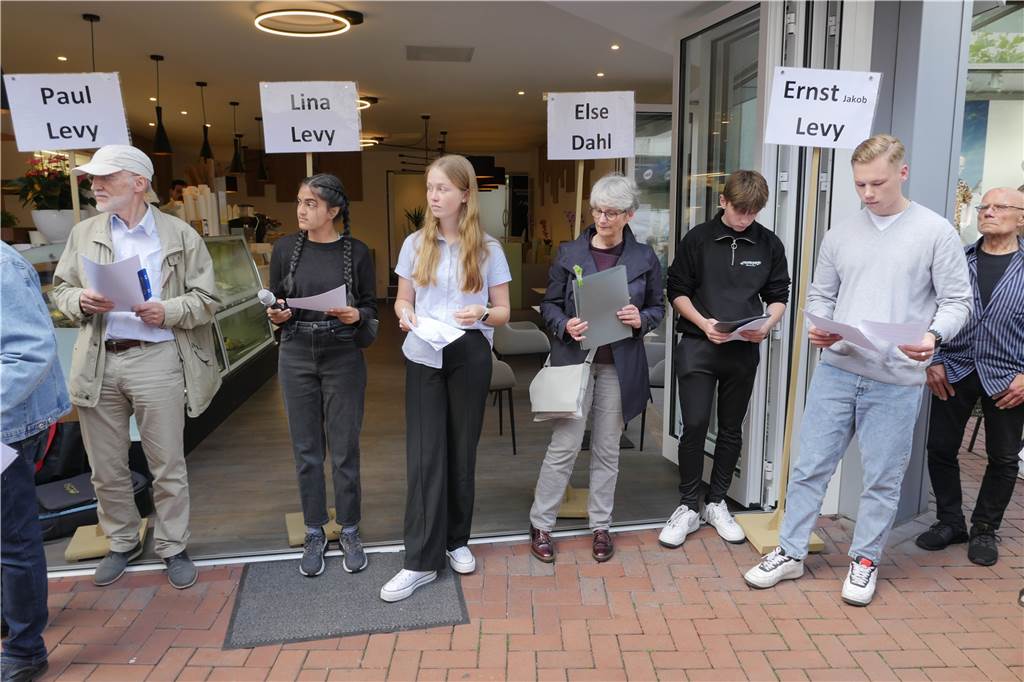 Paul
Levy
Lina
Levy
Else
Dahl
Ernst Jakob
Levy